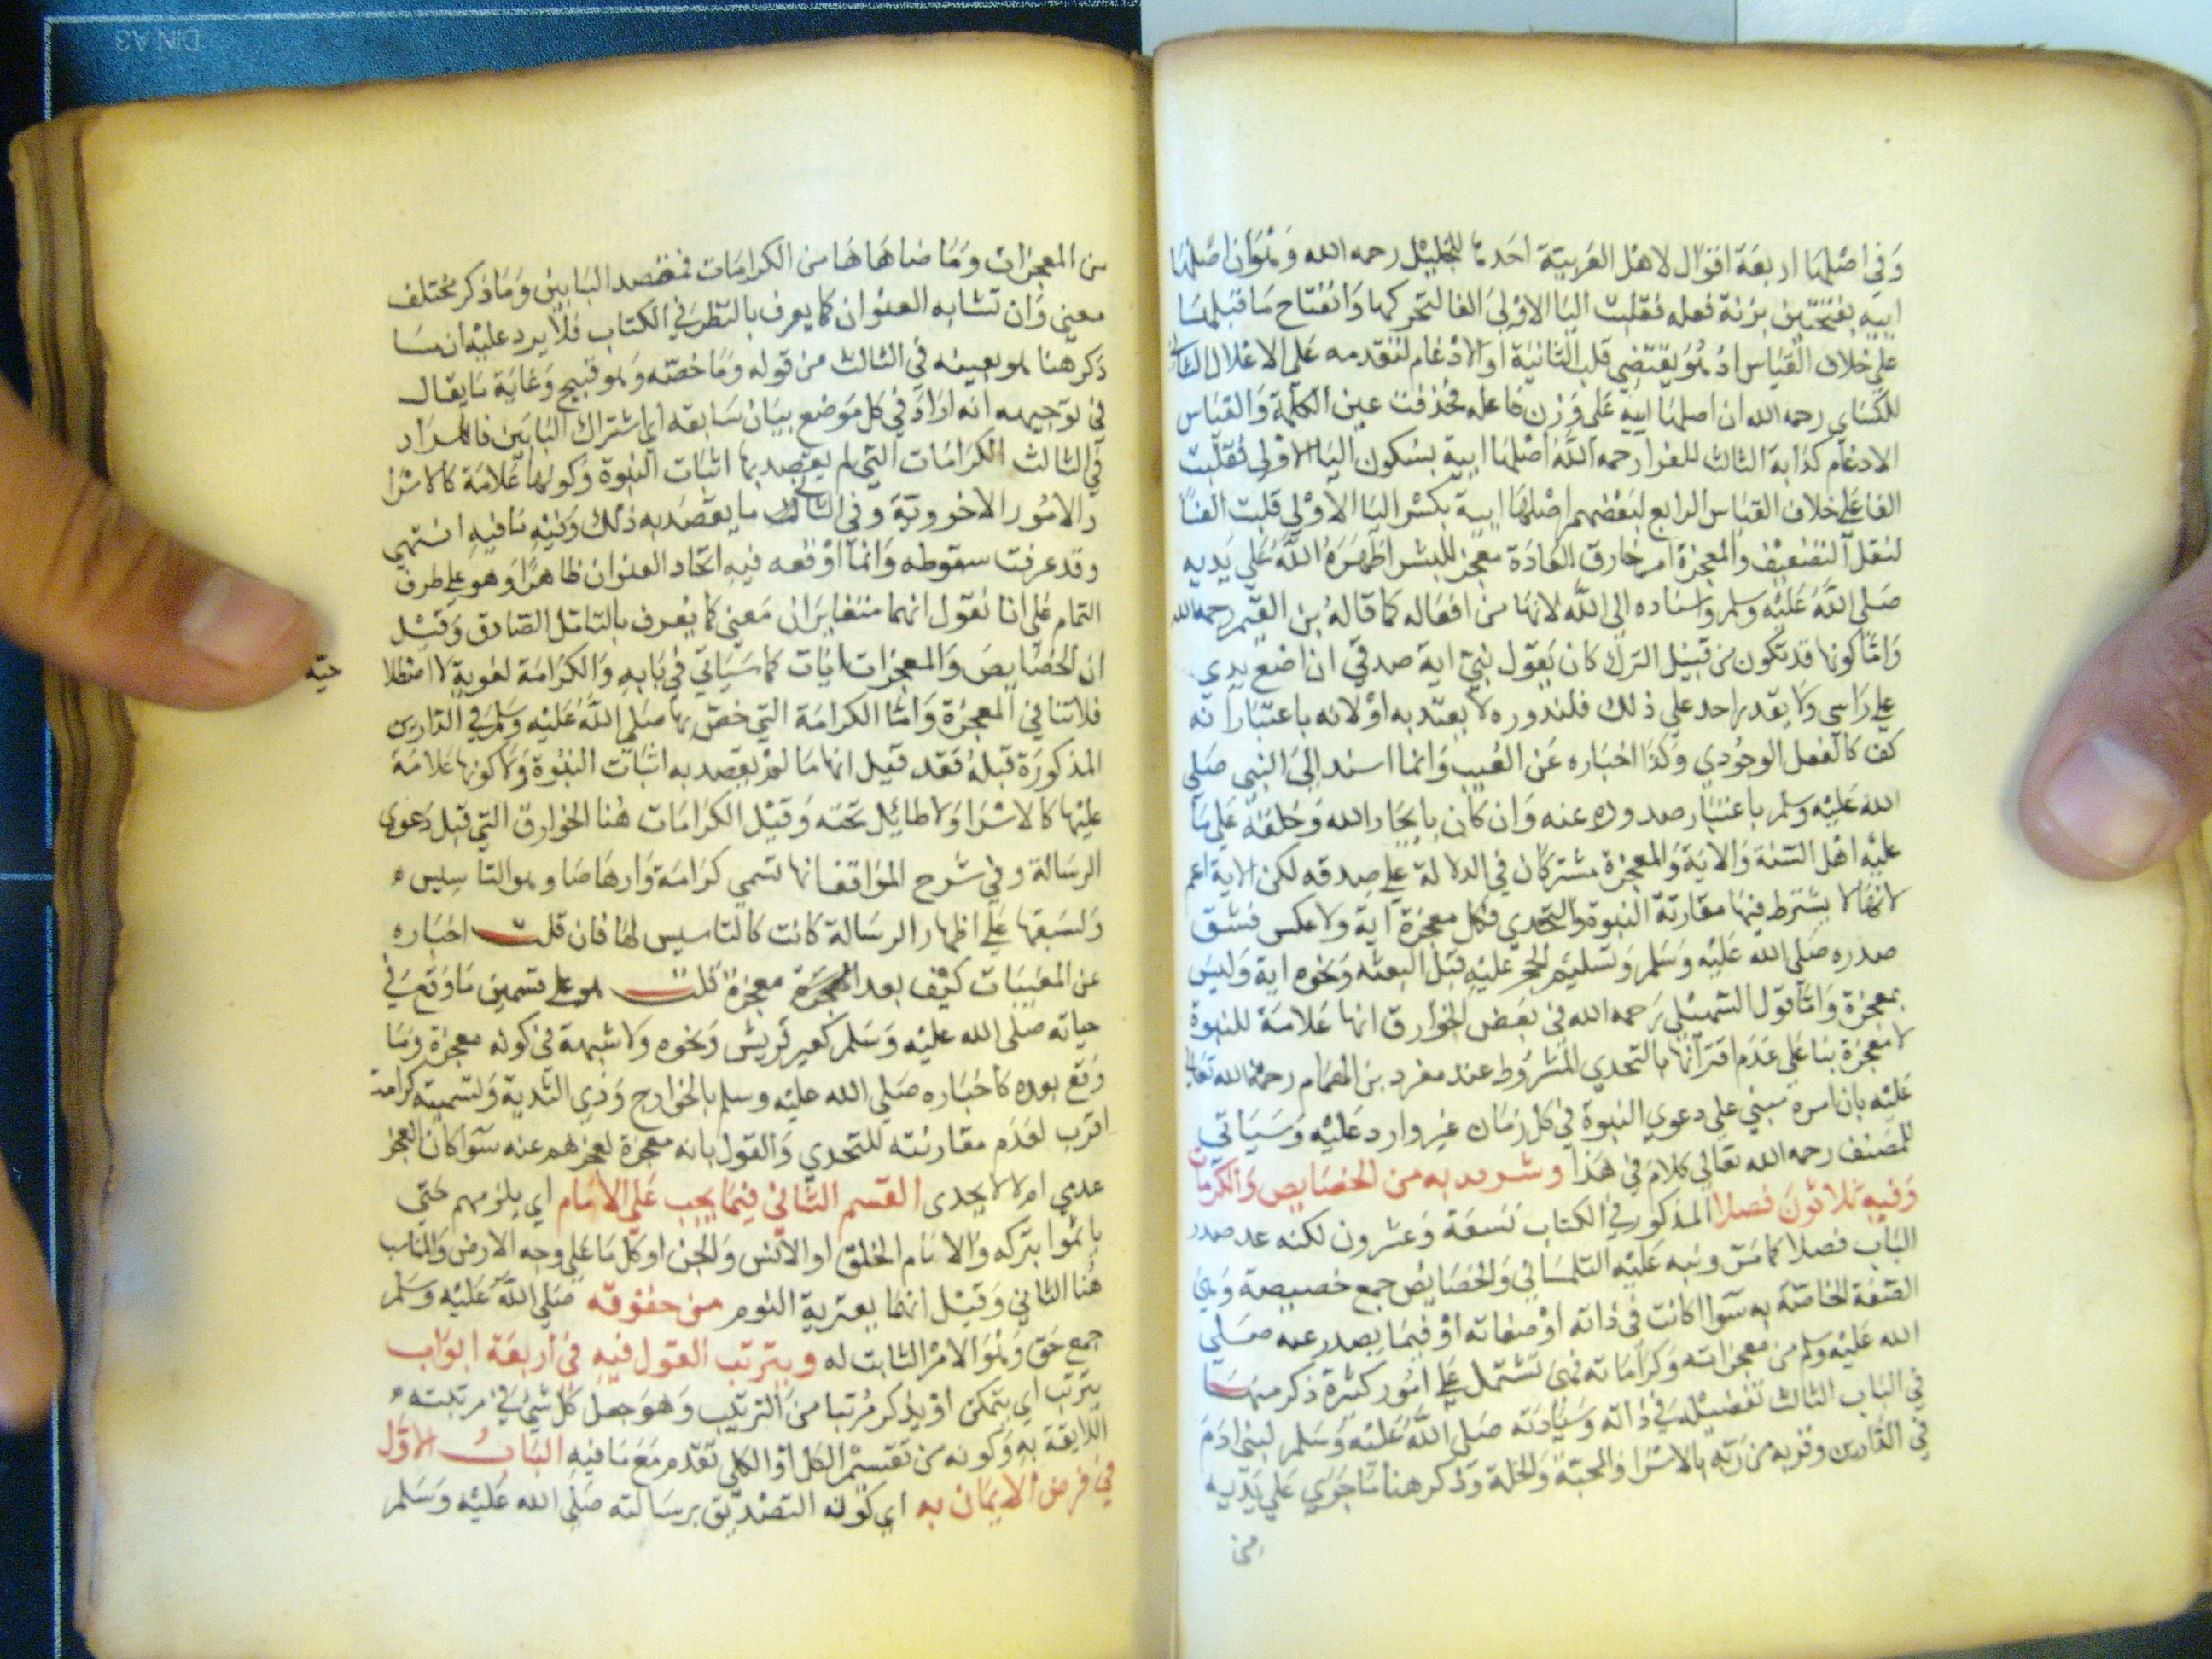 وفي اصلها اربعة اقوال لاهل العربية احدها للخليل رحمه الله وهو ان اصلها
اييه بفتحتين بزنة فعله فقلبت اليا الاولى الفا لتحركها وانفتاح ما قبلها
على خلاف القياس اذ هو يقتضي قلب الثانية او الادغام لتقدمه على الاعلال الثاني
للكساي رحمه الله ان اصلها اييه على وزن فاعله فحذفت عين الكلمة والقياس
الادغام كدابة الثالث للفرا رحمه الله اصلها ايية بسكون اليا الاولى فقلبت
الفا على خلاف القياس الرابع لبعضهم اصلها ايية بكسر اليا الاولى قلبت الفا
لثقل التضعيف والمعجزة امر خارق للعادة معجز للبشر اظهره الله على يديه
صلى الله عليه وسلم واسناده الى الله لانها من افعاله كما قاله بن القيم رحمه الله
واما كونها قد تكون من قبيل الترك كان يقول نبي اية صدقي ان اضع يدي
على راسي ولا يقدر احد على ذلك فلندوره لا يعتد به او لانه باعتبار انه
كف كالفعل الوجودي وكذا اخباره عن الغيب وانما اسند الى النبي صلى
الله عليه وسلم باعتبار صدوره عنه وان كان بايجاد الله وخلقه على ما
عليه اهل السنة والاية والمعجزة مشتركان في الدلالة على صدقه لكن الاية اعم
لانها لا يشترط فيها مقارنة النبوة والتحدي فكل معجزة اية ولا عكس فشق
صدره صلى الله عليه وسلم وتسليم الحجر عليه قبل البعثه ونحوه اية وليس
بمعجزة واما قول السهيلي رحمه الله في بعض الخوارق انها علامة للنبوة
لا معجزة بنا على عدم اقترانها بالتحدي المشروط عند مفرد بن الهمام رحمه الله تعالى
عليه بان امره مبني على دعوي النبوة في كل زمان غير وارد عليه وسياتي
للمصنف رحمه الله تعالى كلام في هذا وشرفه به من الخصايص والكرامات
وفيه ثلاثون فصلا المذكور في الكتاب تسعة وعشرون لكنه عد صدر
الباب فصلا كما مر ونبه عليه التلمساني والخصايص جمع خصيصة وهي
الصفة الخاصة به سوا كانت في ذاته او صفاته او فيما يصدر عنه صلى
الله عليه وسلم من معجزاته وكراماته فهي تشتمل على امور كثيرة ذكر منها
في الباب الثالث تفضيله في ذاته وسيادته صلى الله عليه وسلم لبني ادم
في الدارين وقربه من ربه بالاسرا والمحبة والخلة وذكر هنا ما جري على يديه
من
من المعجزات وما ضاهاها من الكرامات فمقصد البابين وما ذكر مختلف
معني وان تشابه العنوان كما يعرف بالنظر في الكتاب فلا يرد عليه ان ما
ذكر هنا هو بعينه في الثالث من قوله وما خصه وهو قبيح وغاية ما يقال
في توجيهه انه اراد في كل موضع بيان سابقه اي اشتراك البابين فالمراد
في الثالث الكرامات التي لم يقصد بها اثبات النبوة وكونها علامة كالاسرا
والامور الاخروية وفي الثالث ما يقصد به ذلك وفيه ما فيه انتهى
وقد عرفت سقوطه وانما اوقعه فيه اتحاد العنوان ظاهرا وهو على طرف
التمام على انا نقول انهما متغايران معني كما يعرف بالتامل الصادق وقيل
ان الخصايص والمعجزات ايات كما سياتي في بابه والكرامة لغوية لا اصطلا
حية
فلا تنافي المعجزة واما الكرامة التي خص بها صلى الله عليه وسلم في الدارين
المذكورة قبله فقد قيل انها ما لم يقصد به اثبات النبوة ولا كونها علامة
عليها كالاسرا ولا طائيل تحته وقيل الكرامات هنا الخوارق التي قبل دعوي
الرسالة وفي شرح المواقف انها تسمي كرامة وارهاصا وهو التاسيس
ولسبقها على اظهار الرسالة كانت كالتاسيس لها فان قلت اخباره
عن المغيبات كيف يعد معجزة قلت هو على قسمين ما وقع في
حياته صلى الله عليه وسلم كعير قريش ونحوه ولا شبهة في كونه معجزة وما
وقع بعده كاخباره صلى الله عليه وسلم بالخوارج وذي الثدية وتسميته كرامة
اقرب لعدم مقارنته للتحدي والقول بانه معجزة لعجزهم عنه سوا كان العجز
عدمي ام لا لا يجدى القسم الثاني فيما يجب على الانام اي يلزمهم حتي
ياثموا بتركه والانام الخلق او الانس والجن او كل ما على وجه الارض والمناسب
هنا الثاني وقيل انها يعتريه النوم من حقوقه صلى الله عليه وسلم
جمع حق وهو الامر الثابت له ويترتب القول فيه في اربعة ابواب
يترتب اي يتمكن او يذكر مرتبا من الترتيب وهو جعل كل شيء في مرتبته
اللايقة به وكونه من تقسيم الكل او الكلي تقدم مع ما فيه الباب الاول
في فرض الايمان به اي كونه التصديق برسالته صلى الله عليه وسلم